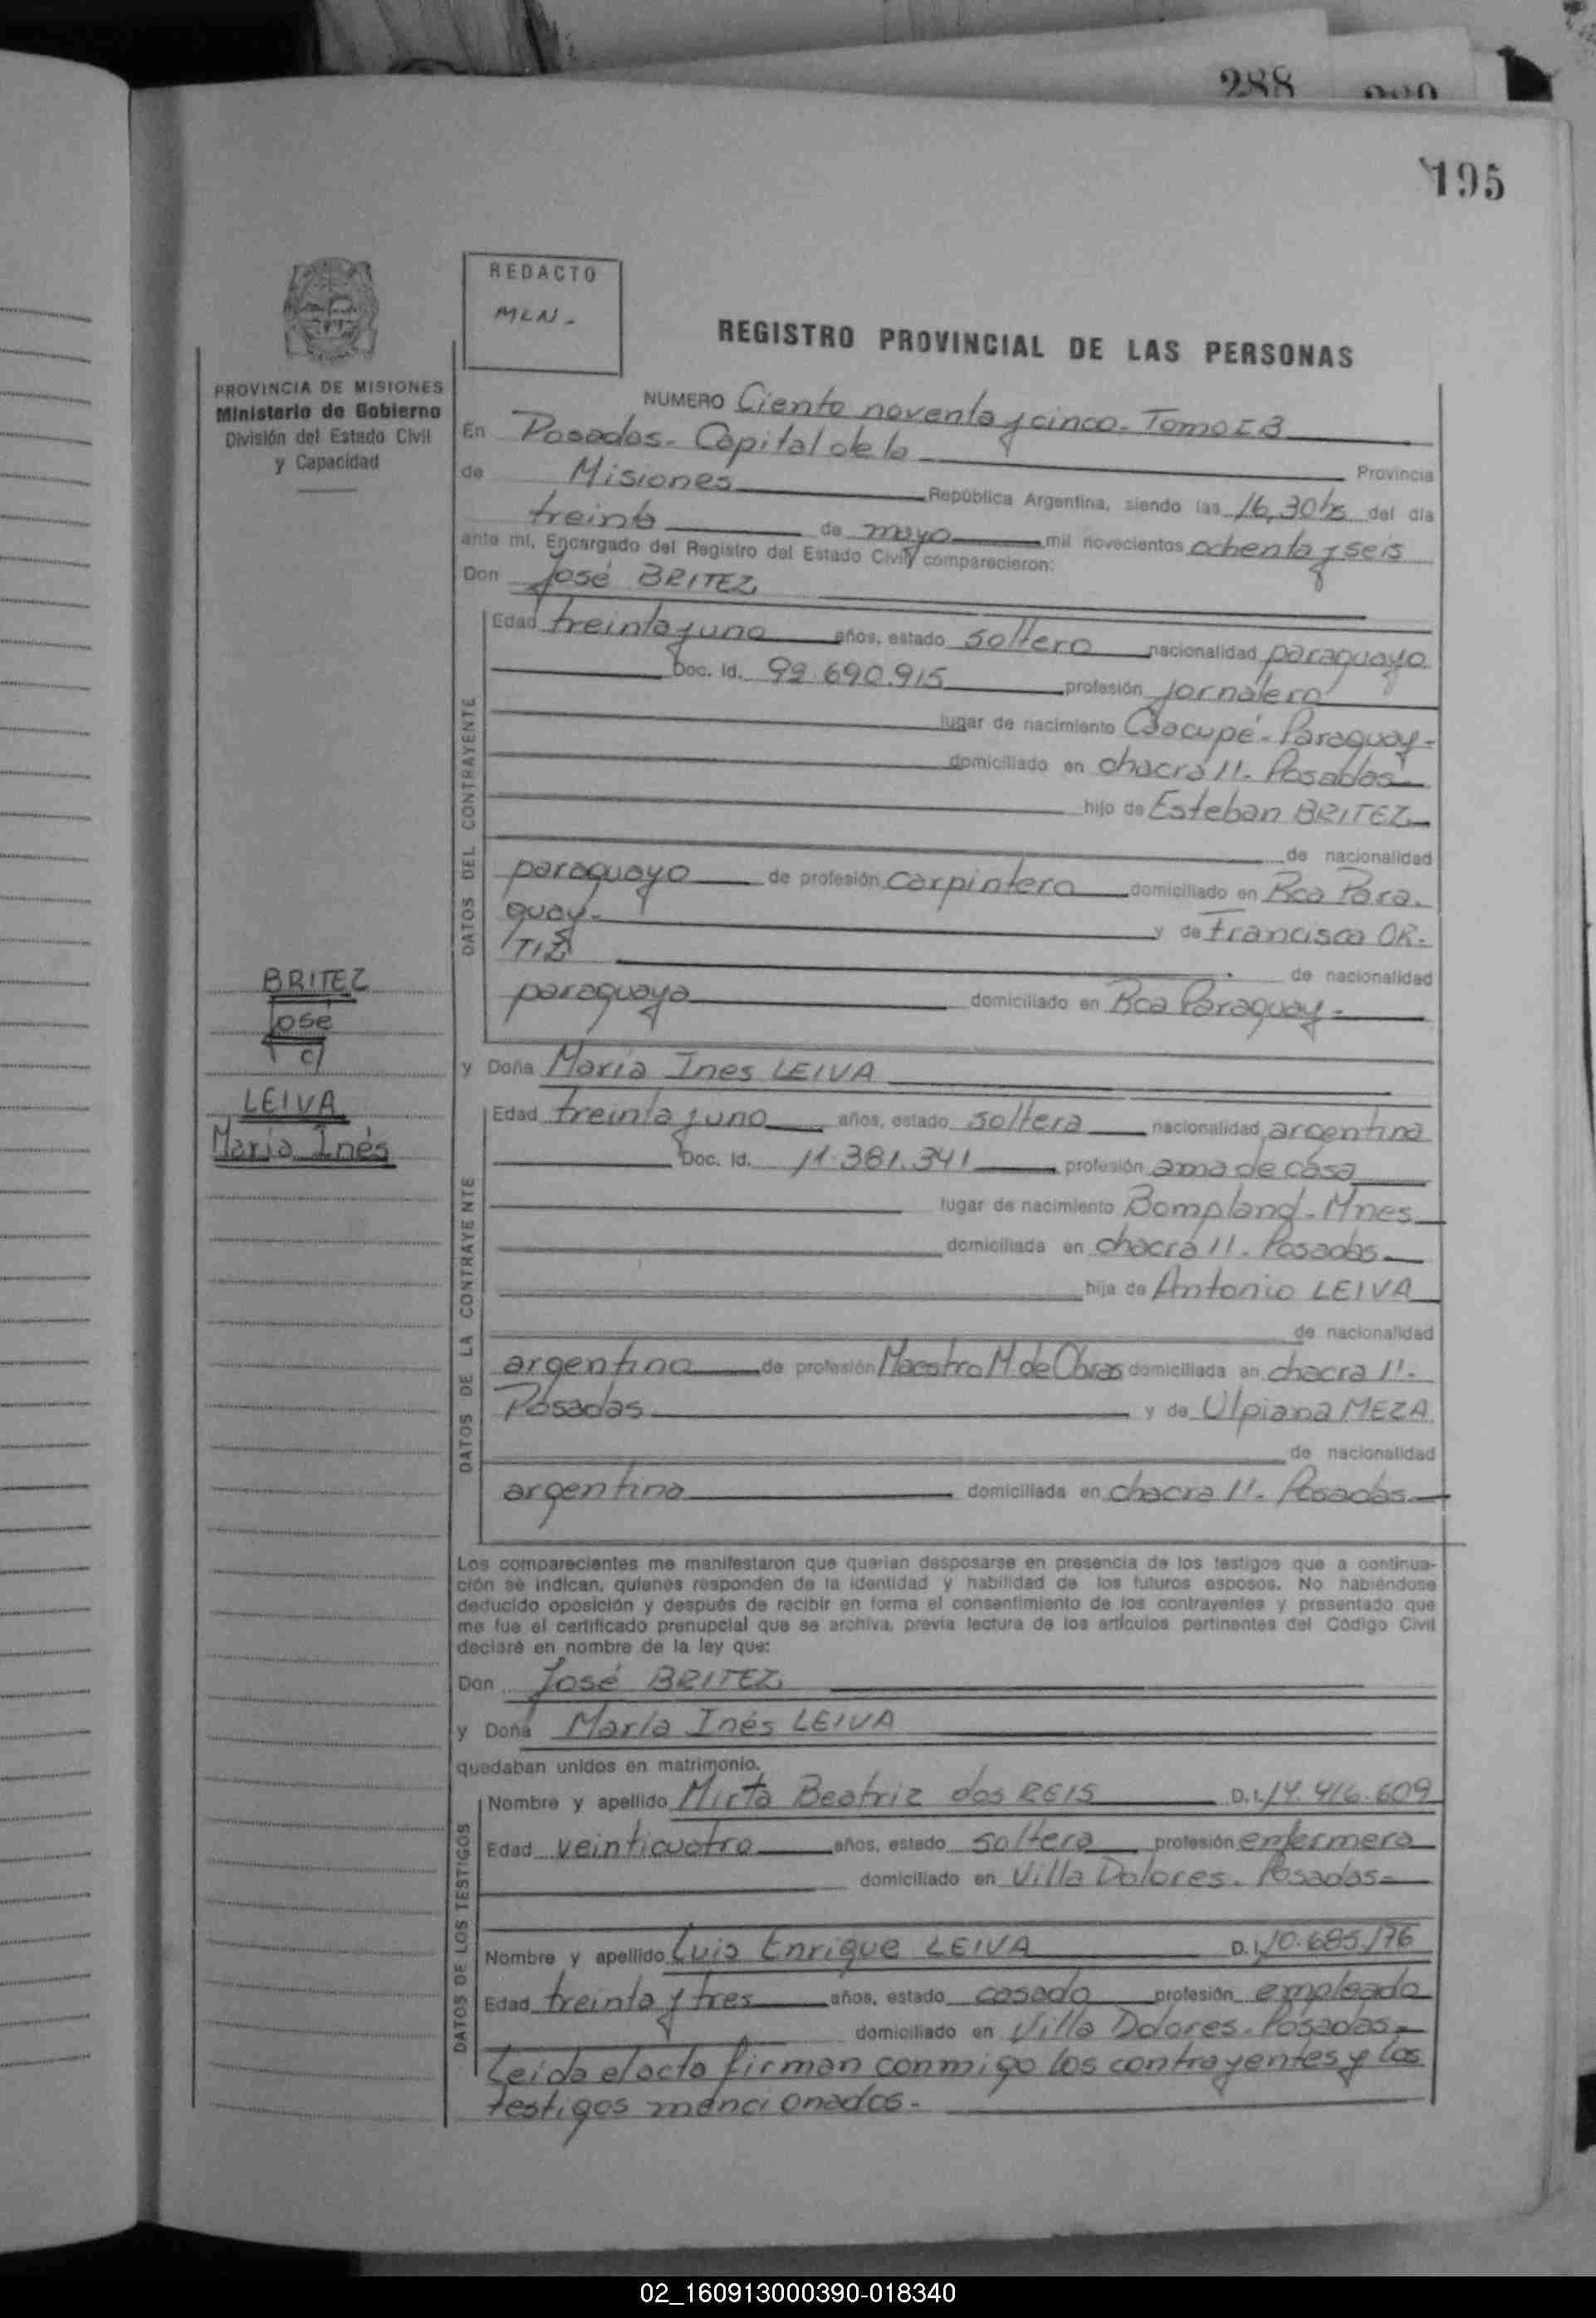 288
195
REDACTO
MLN.-
REGISTRO PROVINCIAL DE LAS PERSONAS
PROVINCIA DE MISIONES
Ministerio de Gobierno
División del Estado Civil
y Capacidad
NUMERO Ciento noventa y cinco. Tomo I B
En Posadas. Capital de la Provincia
de Misiones República Argentina, siendo las 16,30 hs del día
treinta de mayo mil novecientos ochenta y seis
ante mi, Encargado del Registro del Estado Civil, comparecieron:
Don José BRITEZ
DATOS DEL CONTRAYENTE
Edad treinta y uno años, estado soltero nacionalidad paraguayo
Doc. Id. 92.690.915 profesión jornalero
lugar de nacimiento Caacupé - Paraguay -
domiciliado en chacra 11. Posadas
hijo de Esteban BRITEZ
de nacionalidad
paraguayo de profesión carpintero domiciliado en Rca Para.
guay.- y de Francisca OR-
TIZ de nacionalidad
paraguaya domiciliado en Rca Paraguay.-
BRITEZ
José
c/
LEIVA
María Inés
y Doña María Ines LEIVA
DATOS DE LA CONTRAYENTE
Edad treinta y uno años, estado soltera nacionalidad argentina
Doc. Id. 11.381.341 profesión ama de casa
lugar de nacimiento Bompland. Mnes
domiciliada en chacra 11. Posadas.
hija de Antonio LEIVA
de nacionalidad
argentino de profesión Maestro M de Obras domiciliada en chacra 11.
Posadas y de Ulpiana MEZA
de nacionalidad
argentina domiciliada en chacra 11. Posadas
Los comparecientes me manifestaron que querían desposarse en presencia de los testigos que a continua-
ción se indican, quienes responden de la identidad y habilidad de los futuros esposos. No habiéndose
deducido oposición y después de recibir en forma el consentimiento de los contrayentes y presentado que
me fue el certificado prenupcial que se archiva, previa lectura de los artículos pertinentes del Código Civil
declaré en nombre de la ley que:
Don José BRITEZ
y Doña María Inés LEIVA
quedaban unidos en matrimonio.
DATOS DE LOS TESTIGOS
Nombre y apellido Mirta Beatriz dos REIS D.I. 14.416.609
Edad veinticuatro años, estado soltera profesión enfermera
domiciliado en Villa Dolores. Posadas.-
Nombre y apellido Luis Enrique LEIVA D.I. 10.685.176
Edad treinta y tres años, estado casado profesión empleado
domiciliado en Villa Dolores. Posadas.-
Leida el acta firman conmigo los contrayentes y los
testigos mencionados.-
02_160913000390-018340